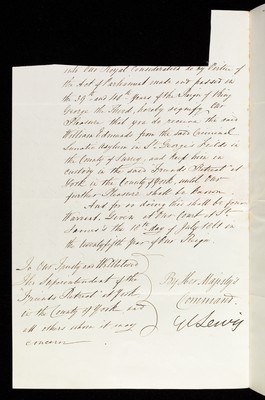 into Our Royal Consideration do by Virtue of
the Act of Parliament made and passed in
the 39th and 40th Years of the Reign of King
George the Third, hereby signify Our
Pleasure that you do receive the said
William Edmunds from the said Criminal
Lunatic Asylum in St. George's Fields in
the County of Surrey, and keep him in
custody in the said Friends Retreat at
York in the County of York, until Our
further Pleasure shall be known.
And for so doing this shall be your
Warrant. Given at Our Court at St.
James's the 18th day of July 1861 in
the twenty fifth Year of Our Reign
To Our Trusty and Wellbeloved
The Superintendent of the
Friends Retreat at York
in the County of York and
all others whom it may
concern
By Her Majesty's
Command.
G C Lewis